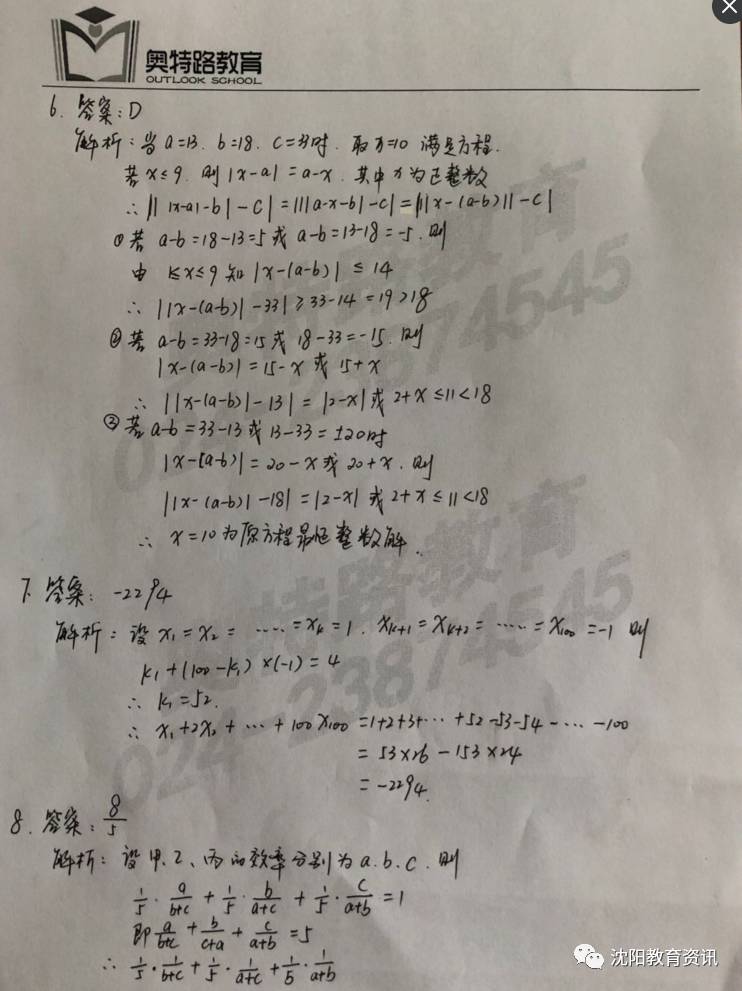 奥特路教育
OUTLOOK SCHOOL
6. 答案:D
解析:当 a=13. b=18. c=33时. 取x=10 满足方程.
若 x≤9. 则 |x-a| = a-x. 其中 x 为正整数
∴ ||| x-a| -b| - c| = |||a-x-b| -c| = ||| x-(a-b)|| -c|
① 若 a-b = 18-13=5 或 a-b=13-18=-5. 则
由 1≤x≤9 知 |x-(a-b)| ≤ 14
∴ ||x-(a-b)| -33| ≥ 33-14 = 19 > 18
② 若 a-b = 33-18=15 或 18-33=-15. 则
|x-(a-b)| = 15-x 或 15+x
∴ ||x-(a-b)| -13| = |2-x| 或 2+x ≤ 11 < 18
③ 若 a-b = 33-13 或 13-33 = ±20时
|x-(a-b)| = 20-x 或 20+x. 则
||x-(a-b)| -18| = |2-x| 或 2+x ≤ 11 < 18
∴ x=10 为原方程最小正整数解.
7. 答案: -2294
解析:设 x₁=x₂= ····· =xₖ=1. xₖ₊₁=xₖ₊₂= ····· = x₁₀₀ =-1 则
k₁+(100-k₁)×(-1)=4
∴ k₁=52.
∴ x₁+2x₂+ ··· +100x₁₀₀ =1+2+3+··· +52-53-54- ··· -100
= 53×26 - 153×24
= -2294.
8. 答案: 8/5
解析:设甲、乙、丙的效率分别为 a.b.c. 则
1/5 · a/(b+c) + 1/5 · b/(a+c) + 1/5 · c/(a+b) = 1
即 a/(b+c) + b/(c+a) + c/(a+b) = 5
∴ 1/5 · 1/(b+c) + 1/5 · 1/(a+c) + 1/5 · 1/(a+b)
奥特路教育
024-23874545
奥特路教育
024-23874545
沈阳教育资讯